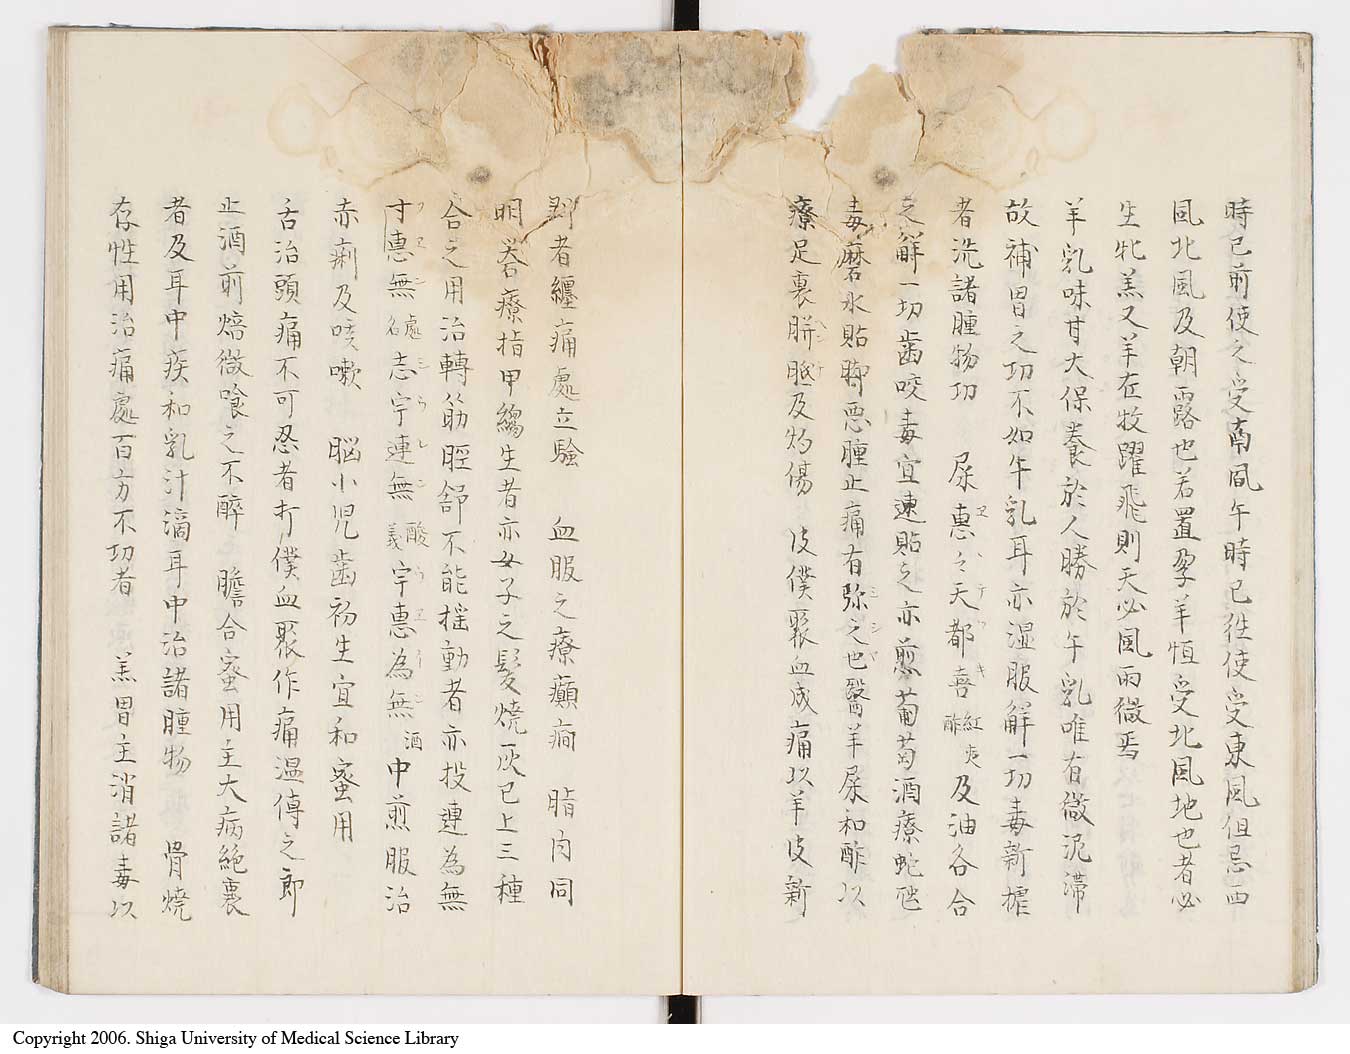 時已前使之受南風午時已往使受東風但忌西
風北風及朝露也若置孕羊恒受北風地也者必
生牝羔又羊在牧躍飛則天必風雨微焉
羊乳味甘大保養於人勝於午乳唯有微泥滞
故補胃之功不如午乳耳亦湿服解一切毒新搾
者洗諸腫物切　尿惠之天都喜紅夷酢及油各合
之解一切歯咬毒宜速貼之亦煎葡萄酒療蛇
毒磨水貼脚悪腫止痛有弥之也醫羊尿和酢以
療足裏胼胝及灼傷　皮僕聚血成痛以羊皮新
剥者纏痛處立驗　血服之療癲癇　脂肉同
明　療指甲　生者亦女子之髪焼灰已上三種
合之用治轉筋脛　不能揺動者亦投連為無
寸惠無名處志宇連無義酸宇惠為無酒中煎服治
赤痢及咳嗽　脳小児歯初生宜和蜜用
舌治頭痛不可忍者打僕血聚作痛温傅之即
止酒煎焙微喰之不酔　膽合蜜用主大病絶裏
者及耳中疾和乳汁滴耳中治諸腫物　骨焼
存性用治痛處百方不切者　羔胃主消諸毒以
Copyright 2006. Shiga University of Medical Science Library